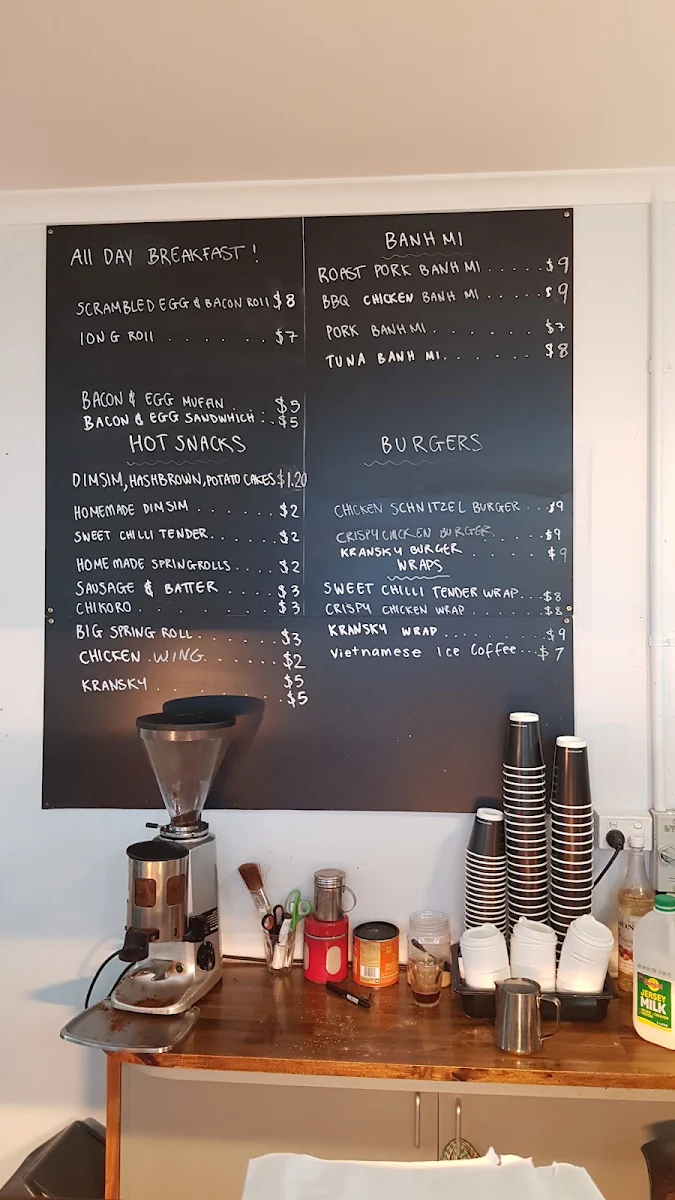 All DAY BREAKFAST !
SCRAMBLED EGG & BACON ROll $8
lONG ROll . . . . . . . $7
BACON & EGG MUFFIN $5
BACON & EGG SANDWHICH : . . $5
HOT SNACKS
DIMSIM, HASHBROWN, POTATO CAKES. $1.20
HOMEMADE DIMSIM . . . . . . $2
SWEET CHILLI TENDER. . . . . . $2
HOME MADE SPRINGROLLS . . . . $2
SAUSAGE & BATTER . . . . $3
CHIKORO . . . . . . . . . $3
BIG SPRING ROLL . . . . . . . $3
CHICKEN WING. . . . . . . $2
KRANSKY . . . . . . . . $5
$5
BANH MI
ROAST PORK BANH MI . . . . . $9
BBQ CHICKEN BANH MI . . . . . $9
PORK BANH MI . . . . . . . $7
TUNA BANH MI . . . . . . . $8
BURGERS
CHICKEN SCHNITZEL BURGER . . . $9
CRISPY CHICKEN BURGER . . . . $9
KRANSKY BURGER . . . . . . $9
WRAPS
SWEET CHILLI TENDER WRAP . . . $8
CRISPY CHICKEN WRAP . . . . . $8
KRANSKY WRAP . . . . . . . . $9
Vietnamese Ice Coffee . . . $7
JERSEY
MILK